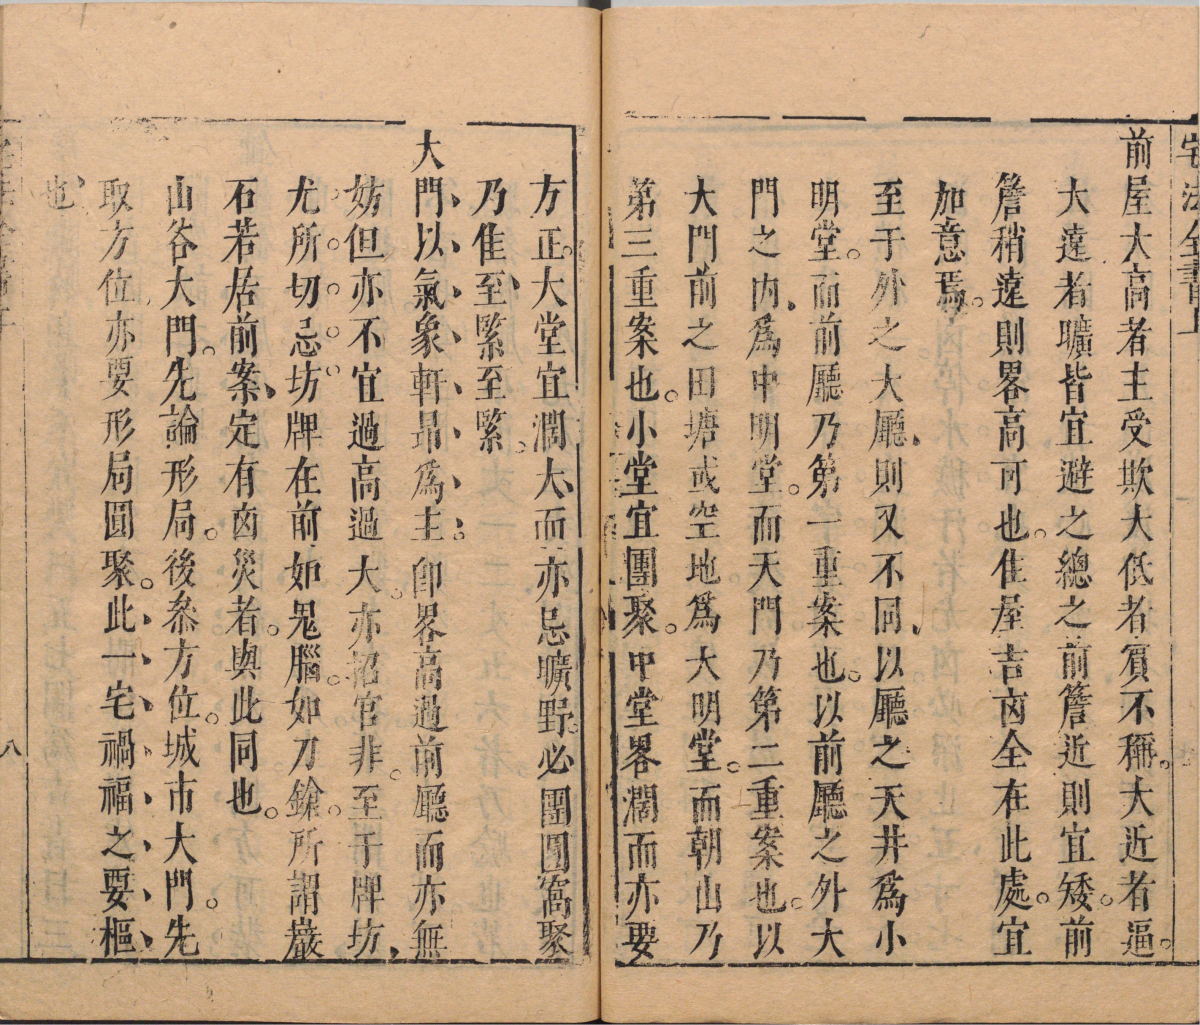 前屋大高者主受欺大低者賔不稱。大近者逼。
大遠者曠皆宜避之總之前簷近則宜矮。前
簷稍遠則畧高可也。住屋吉凶全在此處。宜
如意焉。
至于外之大廳、則又不同、以廳之天井爲小
明堂。而前廳乃第一重案也。以前廳之外大
門之內、爲中明堂。而天門乃第二重案也。以
大門前之田塘或空地爲大明堂。而朝山乃
第三重案也。小堂宜團聚。中堂畧濶而亦要
方正。大堂宜濶大、而亦忌曠野。必團團窩聚
乃隹、至緊至緊。
大門以氣象軒昻爲主。卽畧高過前廳而亦無
妨但亦不宜過高過大。亦招官非。至于牌坊、
尤所切忌。坊牌在前如鬼腦。如刀鎗。所謂巖
石若居前案、定有凶災者。與此同也。
山谷大門。先論形局。後叅方位。城市大門。先
取方位、亦要形局圓聚。此一宅禍福之要樞
也、
八